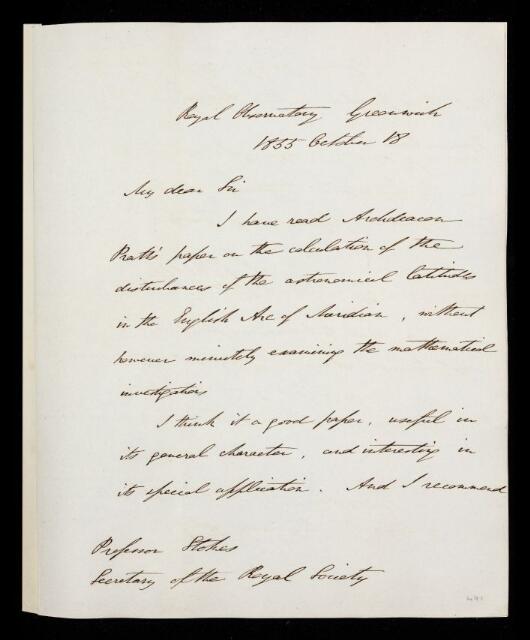 Royal Observatory Greenwich
1855 October 18
My dear Sir
I have read Archdeacon
Pratt's paper on the calculation of the
disturbances of the astronomical latitudes
in the English Arc of Meridian, without
however minutely examining the mathematical
investigations
I think it a good paper, useful in
its general character, and interesting in
its special application. And I recommend
Professor Stokes
Secretary of the Royal Society